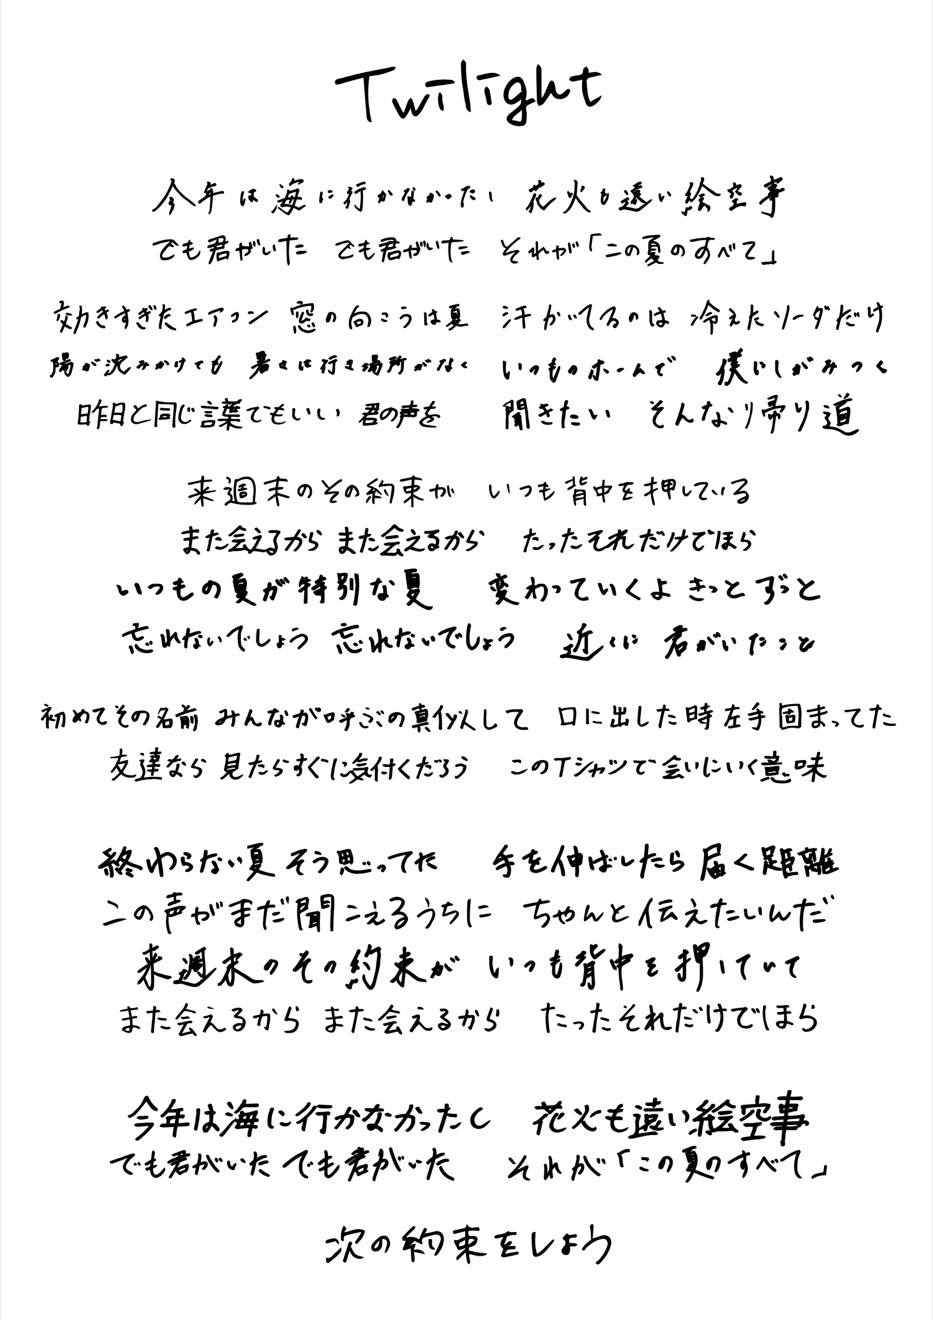 Twilight
今年は海に行かなかったし 花火も遠い絵空事
でも君がいた でも君がいた それが「この夏のすべて」
効きすぎたエアコン 窓の向こうは夏 汗かいてるのは 冷えたソーダだけ
陽が沈みかけても 暑さは行き場所がなく いつものホームで 僕にしがみつく
昨日と同じ言葉でもいい 君の声を 聞きたい そんな帰り道
来週末のその約束が いつも背中を押している
また会えるから また会えるから たったそれだけでほら
いつもの夏が特別な夏 変わっていくよ きっと ずっと
忘れないでしょう 忘れないでしょう 近くに 君がいたこと
初めてその名前 みんなが呼ぶの真似して 口に出した時 左手固まってた
友達なら 見たらすぐに気付くだろう このTシャツで会いにいく意味
終わらない夏 そう思ってた 手を伸ばしたら 届く距離
この声がまだ聞こえるうちに ちゃんと伝えたいんだ
来週末のその約束が いつも背中を押していて
また会えるから また会えるから たったそれだけでほら
今年は海に行かなかったし 花火も遠い絵空事
でも君がいた でも君がいた それが「この夏のすべて」
次の約束をしよう